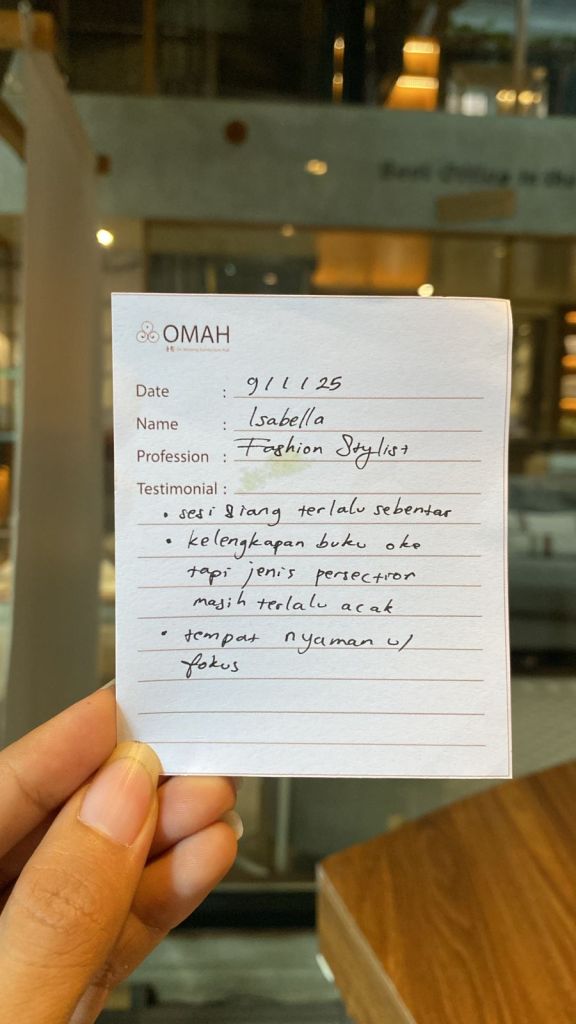 Best Office in the
OMAH
Date : 9/1/25
Name : Isabella
Profession : Fashion Stylist
Testimonial :
• sesi siang terlalu sebentar
• kelengkapan buku oke
tapi jenis persection
masih terlalu acak
• tempat nyaman u/
fokus